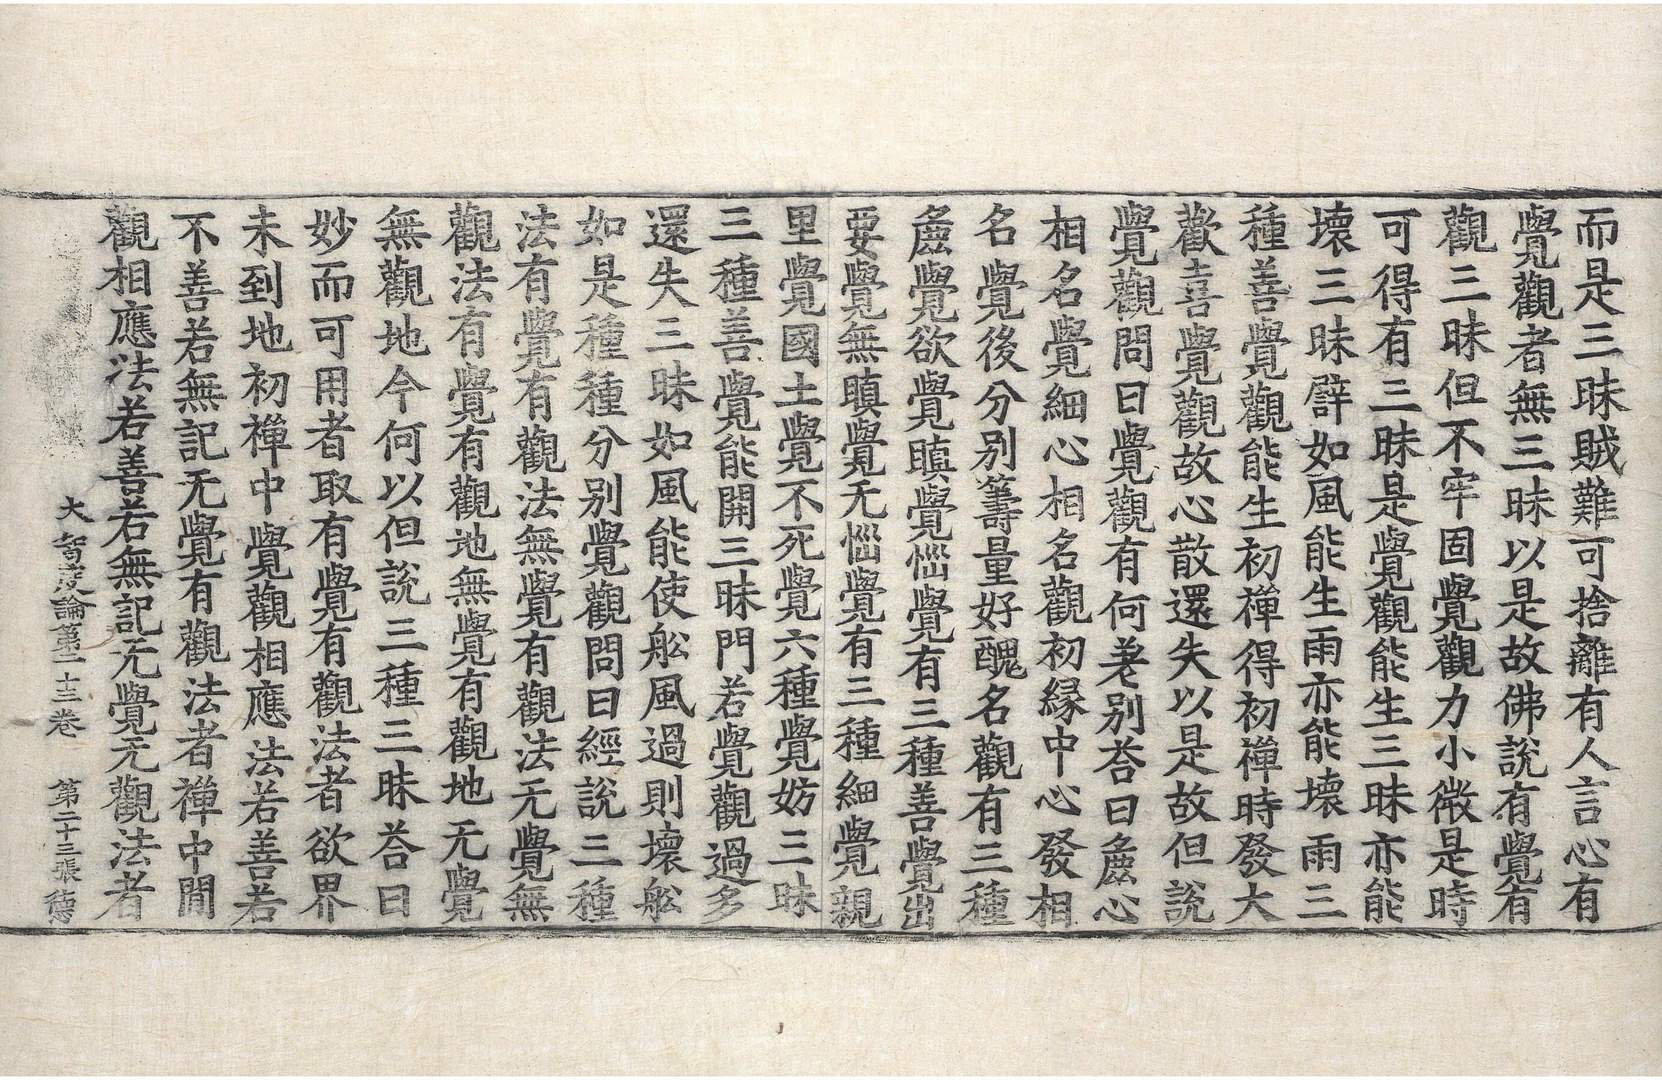 而是三昧賊難可捨離有人言心有
覺觀者無三昧以是故佛說有覺有
觀三昧但不牢固覺觀力小微是時
可得有三昧是覺觀能生三昧亦能
壞三昧譬如風能生雨亦能壞雨三
種善覺觀能生初禪得初禪時發大
歡喜覺觀故心散還失以是故但說
覺觀問曰覺觀有何差別荅曰麁心
相名覺細心相名觀初緣中心發相
名覺後分別籌量好醜名觀有三種
麁覺欲覺瞋覺惱覺有三種善覺出
要覺無瞋覺无惱覺有三種細覺親
里覺國土覺不死覺六種覺妨三昧
三種善覺能開三昧門若覺觀過多
還失三昧如風能使舩風過則壞舩
如是種種分別覺觀問曰經說三種
法有覺有觀法無覺有觀法无覺無
觀法有覺有觀地無覺有觀地无覺
無觀地今何以但說三種三昧荅曰
妙而可用者取有覺有觀法者欲界
未到地初禪中覺觀相應法若善若
不善若無記无覺有觀法者禪中間
觀相應法若善若無記无覺无觀法者
大智度論第二十三卷　第二十三張　德